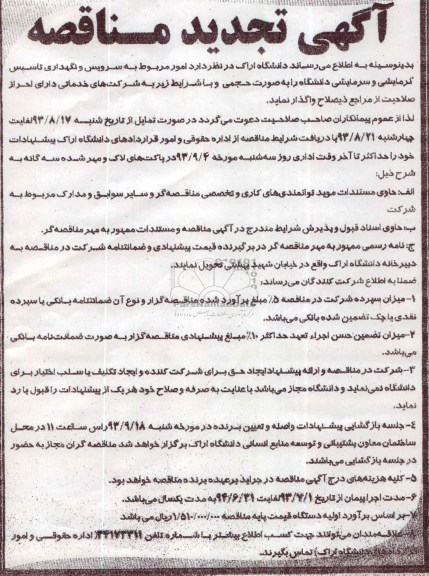 آگهی تجدید مناقصه
بدینوسیله به اطلاع می‌رساند دانشگاه اراک در نظر دارد امور مربوط به سرویس و نگهداری تاسیس
گرمایشی و سرمایشی دانشگاه را به صورت حجمی و با شرایط زیر به شرکت‌های خدماتی دارای احراز
صلاحیت از مراجع ذیصلاح واگذار نماید.
لذا از عموم پیمانکاران صاحب صلاحیت دعوت می‌گردد در صورت تمایل از تاریخ شنبه ۹۳/۸/۱۷ لغایت
چهارشنبه ۹۳/۸/۲۱ با دریافت شرایط مناقصه از اداره حقوقی و امور قراردادهای دانشگاه اراک پیشنهادات
خود را حداکثر تا آخر وقت اداری روز سه‌شنبه مورخه ۹۳/۹/۴ در پاکت‌های لاک و مهر شده سه گانه به
شرح ذیل:
الف: حاوی مستندات موید توانمندی‌های کاری و تخصصی مناقصه‌گر و سایر سوابق و مدارک مربوط به
شرکت
ب: حاوی اسناد قبول و پذیرش شرایط مندرج در آگهی مناقصه و مستندات ممهور به مهر مناقصه‌گر.
ج: نامه رسمی ممهور به مهر مناقصه گر در برگیرنده قیمت پیشنهادی و ضمانتنامه شرکت در مناقصه به
دبیرخانه دانشگاه اراک واقع در خیابان شهید بهشتی تحویل نمایند.
ضمنا به اطلاع شرکت کنندگان می‌رساند:
۱- میزان سپرده شرکت در مناقصه ۵٪ مبلغ برآورد شده مناقصه‌گزار و نوع آن ضمانتنامه بانکی یا سپرده
نقدی یا چک تضمین شده بانکی می‌باشد.
۲- میزان تضمین حسن اجراء تعهد حداکثر ۱۰٪ مبلغ پیشنهادی مناقصه‌گزار به صورت ضمانت‌نامه بانکی
می‌باشد.
۳- شرکت در مناقصه و ارائه پیشنهاد ایجاد حق برای شرکت کننده و ایجاد تکلیف یا سلب اختیار برای
دانشگاه نمی‌نماید و دانشگاه مجاز می‌باشد با عنایت به صرفه و صلاح خود هر یک از پیشنهادات را قبول یا رد
نماید.
۴- جلسه بازگشایی پیشنهادات واصله و تعیین برنده در مورخه شنبه ۹۳/۹/۱۸ راس ساعت ۱۱ در محل
ساختمان معاون پشتیبانی و توسعه منابع انسانی دانشگاه اراک برگزار خواهد شد مناقصه گران مجاز به حضور
در جلسه بازگشایی می‌باشند.
۵- کلیه هزینه‌های درج آگهی مناقصه در جراید برعهده برنده مناقصه خواهد بود.
۶- مدت اجرا پیمان از تاریخ ۹۳/۷/۱ لغایت ۹۴/۶/۳۱ به مدت یکسال می‌باشد.
۷- بر اساس برآورد اولیه دستگاه قیمت پایه مناقصه ۱/۵۱۰/۰۰۰/۰۰۰ ریال می باشد
۸- علاقه‌مندان می‌توانند جهت کسب اطلاع بیشتر با شماره تلفن ۳۴۱۷۳۳۱۱ (اداره حقوقی و امور
قراردادهای دانشگاه اراک) تماس بگیرند.